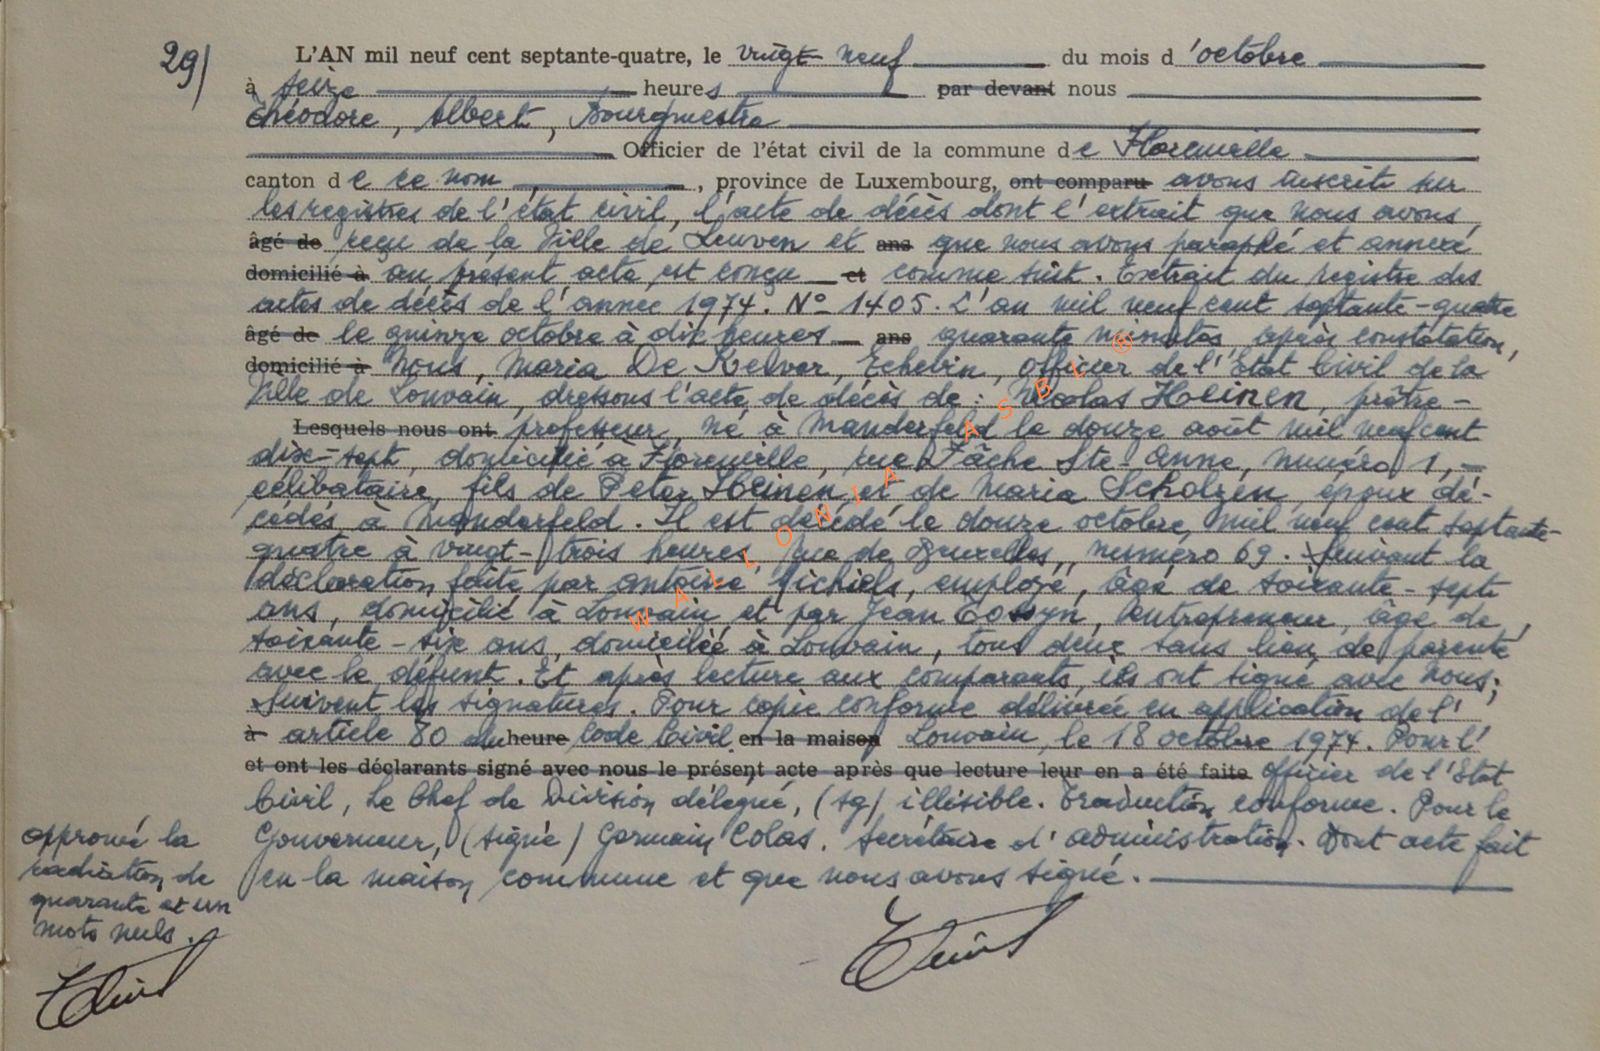 29/ L'AN mil neuf cent septante-quatre, le vingt-neuf du mois d'octobre
à seize heures par devant nous
Théodore, Albert, Bourgmestre
Officier de l'état civil de la commune de Florenville
canton de ce nom, province de Luxembourg, ont comparu avons inscrit sur
les registres de l'état civil, l'acte de décès dont l'extrait que nous avons
âgé de reçu de la Ville de Leuven et ans que nous avons paraphé et annexé
domicilié à au présent acte est conçu et comme suit. Extrait du registre des
actes de décès de l'année 1974. N° 1405. L'an mil neuf cent septante-quatre
âgé de le quinze octobre à dix heures ans quarante minutes, après constatation,
domicilié à Nous, Maria De Kelver, Echevin, officier de l'Etat Civil de la
Ville de Louvain, dressons l'acte de décès de: Nicolas Heinen, prêtre-
Lesquels nous ont professeur, né à Manderfeld le douze août mil neuf cent
dix-sept, domicilié à Florenville, rue Fâche Ste-Anne, numéro 1,
célibataire, fils de Peter Heinen et de Maria Scholzen, époux dé-
cédés à Manderfeld. Il est décédé le douze octobre, mil neuf cent septante-
quatre à vingt-trois heures, rue de Bruxelles, numéro 69. Suivant la
déclaration faite par Antoine Michiels, employé, âgé de soixante-sept
ans, domicilié à Louvain et par Jean entrepreneur, âgé de
soixante-six ans, domicilié à Louvain, tous deux sans lien de parenté
avec le défunt. Et après lecture aux comparants, ils ont signé avec Nous;
Suivent les signatures. Pour copie conforme délivrée en application de l'
à article 80 du heure Code Civil en la maison Louvain, le 18 octobre 1974. Pour l'
et ont les déclarants signé avec nous le présent acte après que lecture leur en a été faite officier de l'Etat
Civil, Le Chef de Division délégué, (sg) illisible. Traduction conforme. Pour le
Gouverneur, (signé) Germain Colas. Secrétaire d'administration. Dont acte fait
en la maison commune et que nous avons signé.
approuvé la
radiation de
quarante et un
mots nuls.
WALLONIA ASBL ®